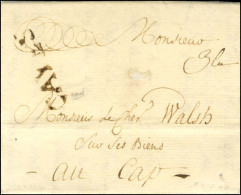 Monsieur
Monsieur Le Cher. Walsh
Sur Ses Biens
- au Cap -